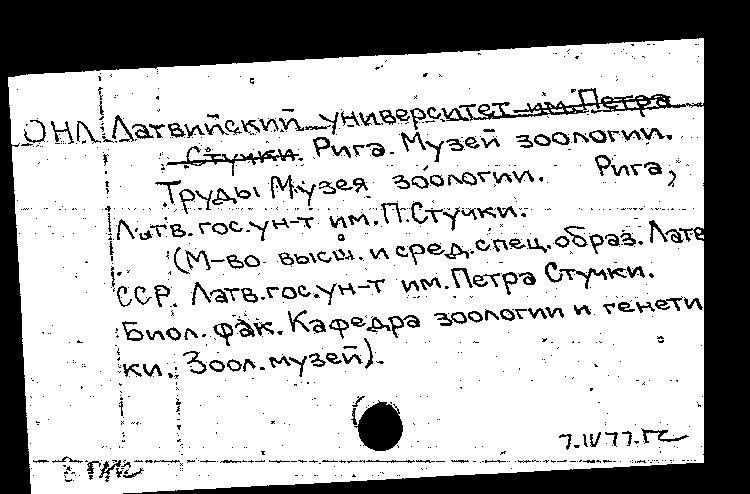 ОНЛ Латвийский университет им. Петра
Стучки. Рига. Музей зоологии.
Труды Музея зоологии. Рига,
Латв. гос. ун-т им. П. Стучки.
(М-во высш. и сред. спец. образ. Латв
ССР. Латв. гос. ун-т им. Петра Стучки.
Биол. фак. Кафедра зоологии и генети
ки. Зоол. музей).
7.IV 77. ГС